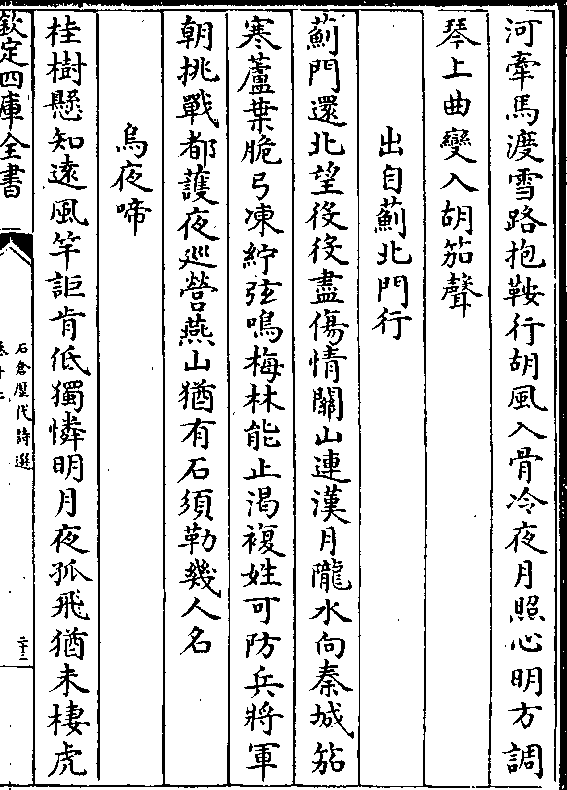 河牽馬渡雪路抱鞍行胡風入骨冷夜月照心明方調
琴上曲變入胡笳聲
出自薊北門行
薊門還北望役役盡傷情關山連漢月隴水向秦城笳
寒蘆葉脆弓凍紵弦鳴梅林能止渴複姓可防兵將軍
朝挑戰都護夜巡營燕山猶有石須勒幾人名
烏夜啼
桂樹懸知遠風竿詎肯低獨憐明月夜孤飛猶未棲虎
欽定四庫全書
石倉歴代詩選
二十二